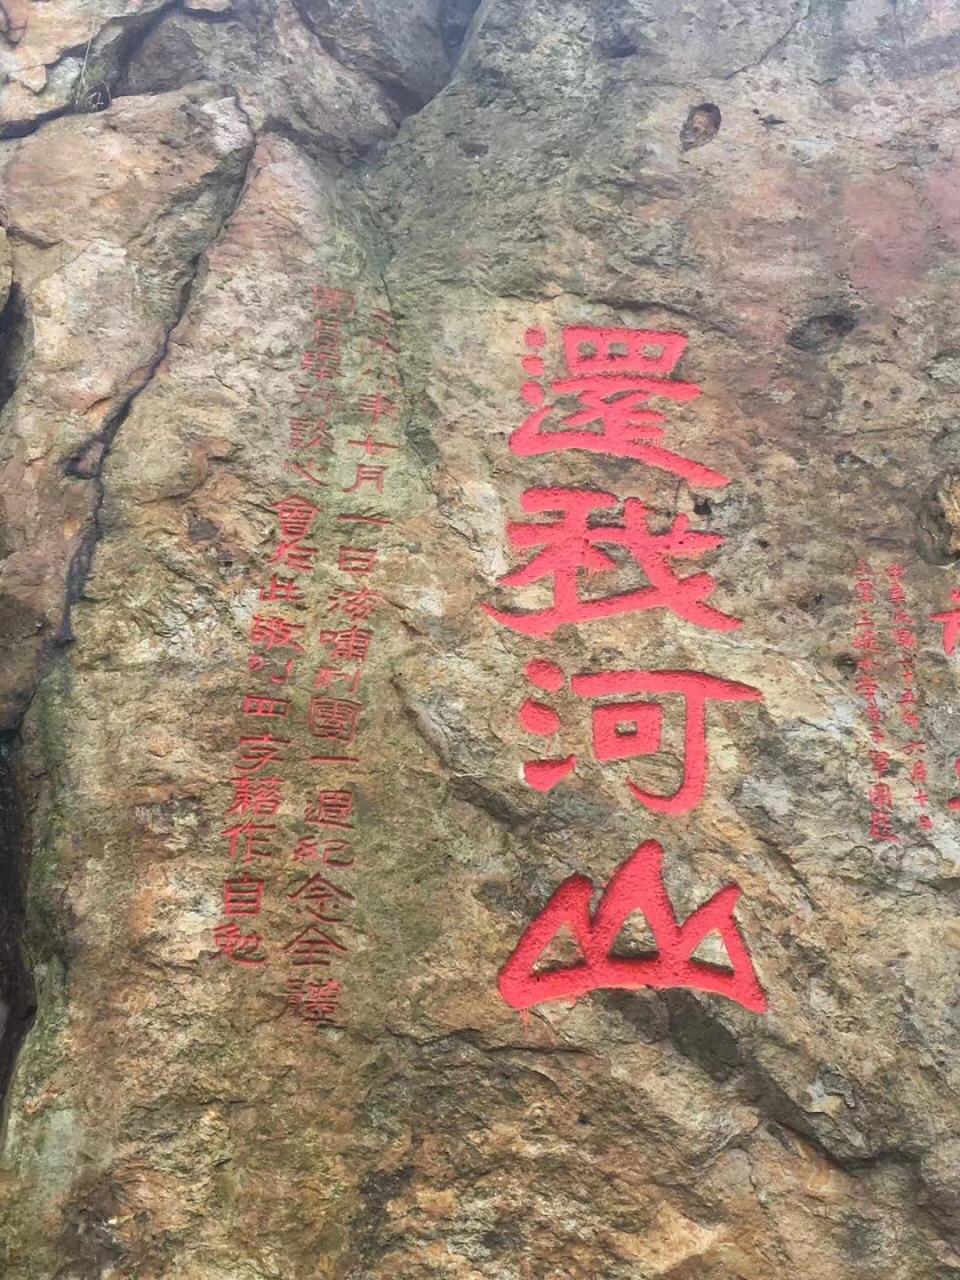 中華民國七十五年六月十日
還我河山
二十八年七月一日海嘯劇團一週紀念全體
團員舉行談心會在此敬刊四字藉作自勉